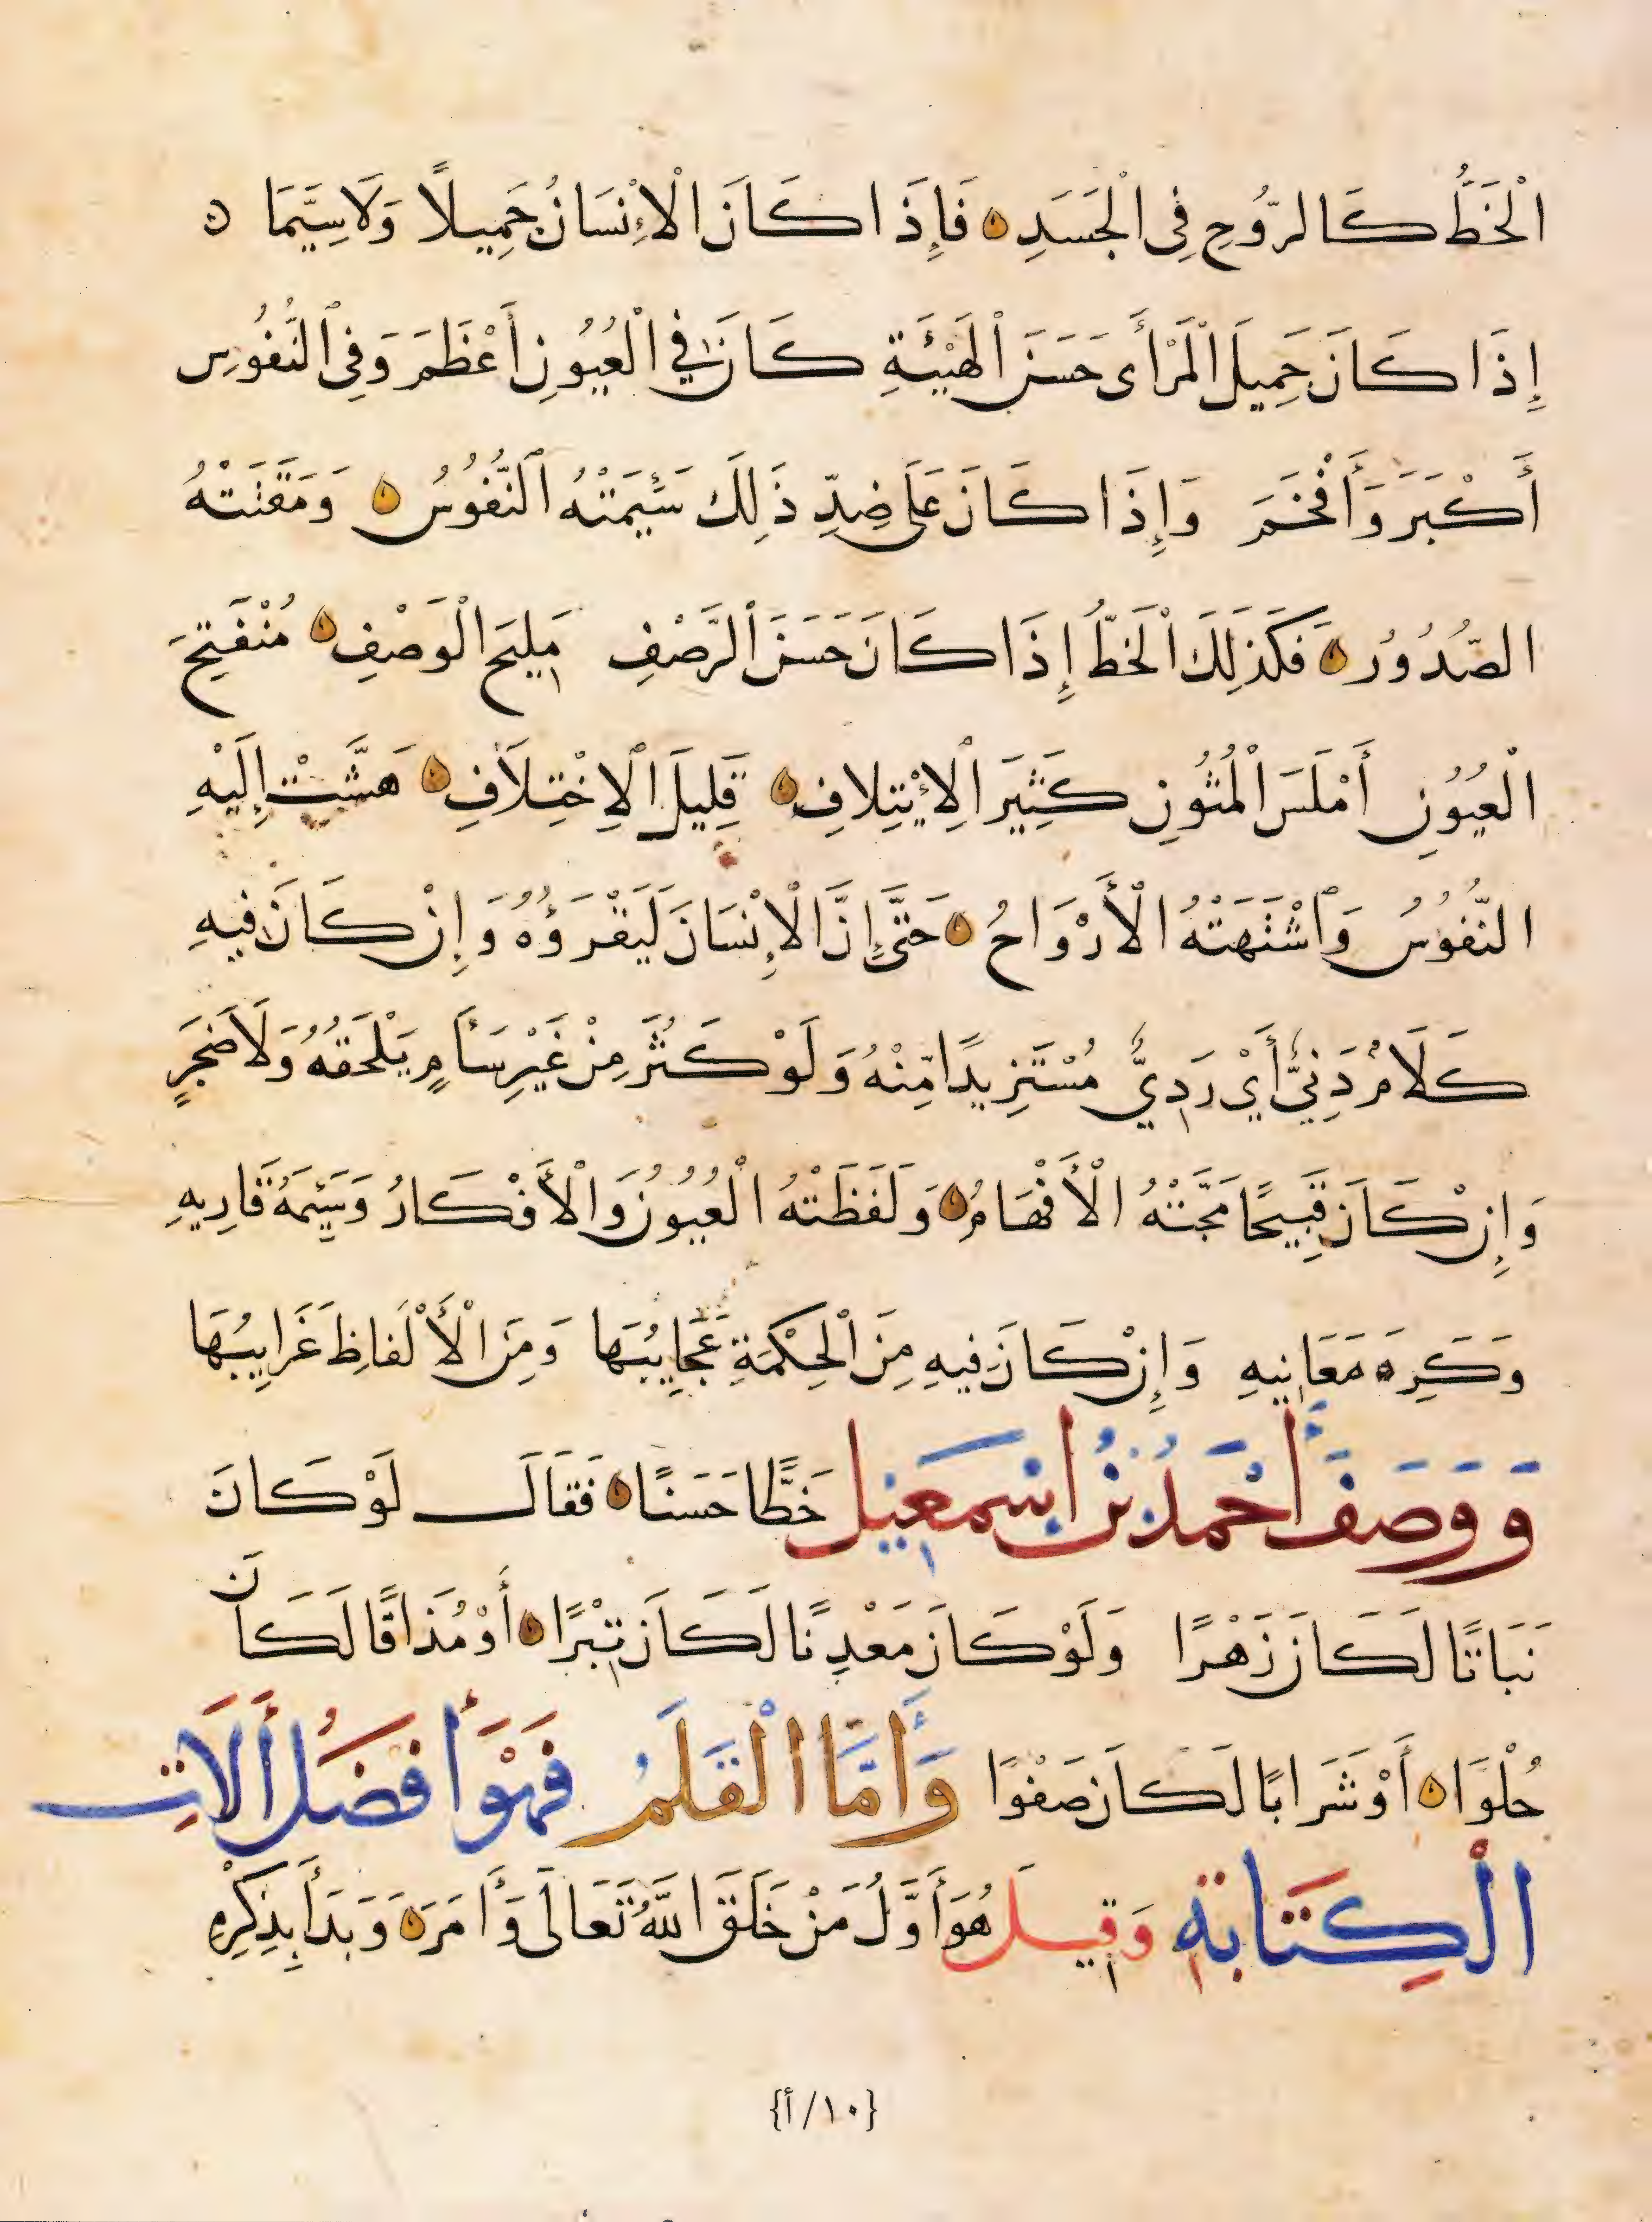 الْخَطُّ كَالرُّوحِ فِى الْجَسَدِ فَإِذَا كَانَ الْإِنْسَانُ جَمِيلًا وَلَاسِيَّمَا
إِذَا كَانَ جَمِيلَ الْمَرْأَى حَسَنَ الْهَيْئَةِ كَانَ فِي الْعُيُونِ أَعْظَمَ وَفِى النُّفُوسِ
أَكْبَرَ وَأَفْخَمَ وَإِذَا كَانَ عَلَى ضِدِّ ذَلِكَ سَئِيمَتْهُ النُّفُوسُ وَمَقَتَتْهُ
الصُّدُورُ فَكَذَلِكَ الْخَطُّ إِذَا كَانَ حَسَنَ الرَّصْفِ مَلِيحَ الْوَصْفِ مُنْفَتِحَ
الْعُيُونِ أَمْلَسَ الْمُتُونِ كَثِيرَ الْإِئْتِلافِ قَلِيلَ الْاِخْتِلَافِ هَشَّتْ إِلَيْهِ
النُّفُوسُ وَاشْتَهَتْهُ الْأَرْوَاحُ حَتَّى إِنَّ الْإِنْسَانَ لَيَقْرَؤُهُ وَإِنْ كَانَ فِيهِ
كَلَامٌ دَنِيٌّ أَيْ رَدِيٌّ مُسْتَزِيدًا مِّنْهُ وَلَوْ كَثُرَ مِنْ غَيْرِ سَأَمٍ يَلْحَقُهُ وَلَا ضَجَرٍ
وَإِنْ كَانَ قَبِيحًا مَجَّتْهُ الْأَفْهَامُ وَلَفَظَتْهُ الْعُيُونُ وَالْأَفْكَارُ وَسَيِّمَهُ قَارِيهِ
وَكَرِهَ مَعَانِيهِ وَإِنْ كَانَ فِيهِ مِنَ الْحِكْمَةِ عَجَايِبُهَا وَمِنَ الْأَلْفَاظِ غَرَايِبُهَا
وَوَصَفَ أَحْمَدُ بْنُ إِسْمَعِيلَ خَطًّا حَسَنًا فَقَالَ لَوْ كَانَ
نَبَاتًا لَكَانَ زَهْرًا وَلَوْ كَانَ مَعْدِنًا لَكَانَ تِبْرًا أَوْ مُذَاقًا لَكَانَ
حُلْوًا أَوْ شَرَابًا لَكَانَ صَفْوًا وَأَمَّا الْقَلَمُ فَهُوَ أَفْضَلُ أَلَاتِ
الْكِتَابَةِ وَقِيلَ هُوَ أَوَّلُ مَنْ خَلَقَ اللَّهُ تَعَالَى وَأَمَرَهُ وَبَدَأَ بِذِكْرِهِ
{١٠/أ}